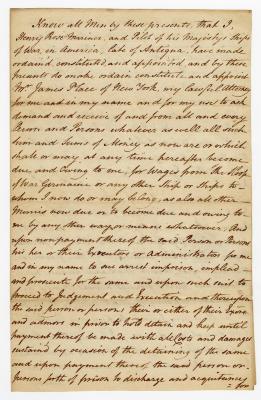 Know all Men by these presents, that I,
Henry Ross Mariner, and Pilot of his Majesty's Ships
of War, in America, late of Antigua, have made
ordained, constituted, and appointed, and by these
presents do make ordain constitute and appoint
Mr. James Place of New York, my lawful Attorney
for me and in my name and for my use to ask
demand and receive of and from all and every
Person and Persons whatever as well all such
Sum and Sums of Money as now are or which
shall or may at any time hereafter become
due, and Owing to me, for Wages from the Sloop
of War Germaine or any other Ship or Ships to
whom I now do or may belong, as also all other
Monies now due or to become due and owing to
me by any other way or means whatsoever. And
upon nonpayment thereof the said Person or Persons
his her or their Executors or Administrators for me
and in my name to sue arrest imprison, implead
and prosecute for the same and upon such suit to
proceed to Judgement and Execution and thereupon
the said person or persons their or either of their Exors
and admors in prison to hold detain and keep until
payment thereof be made with all Costs and damages
sustained by occasion of the detaining of the same
and upon payment thereof the said person or
persons forth of prison to discharge and acquittances
for